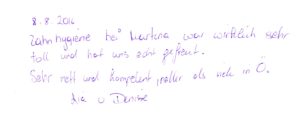 8.8.2016
Zahnhygiene bei Martina war wirklich sehr
toll und hat uns sehr gefreut.
Sehr nett und kompetent, netter als viele in Ö.
u Denise